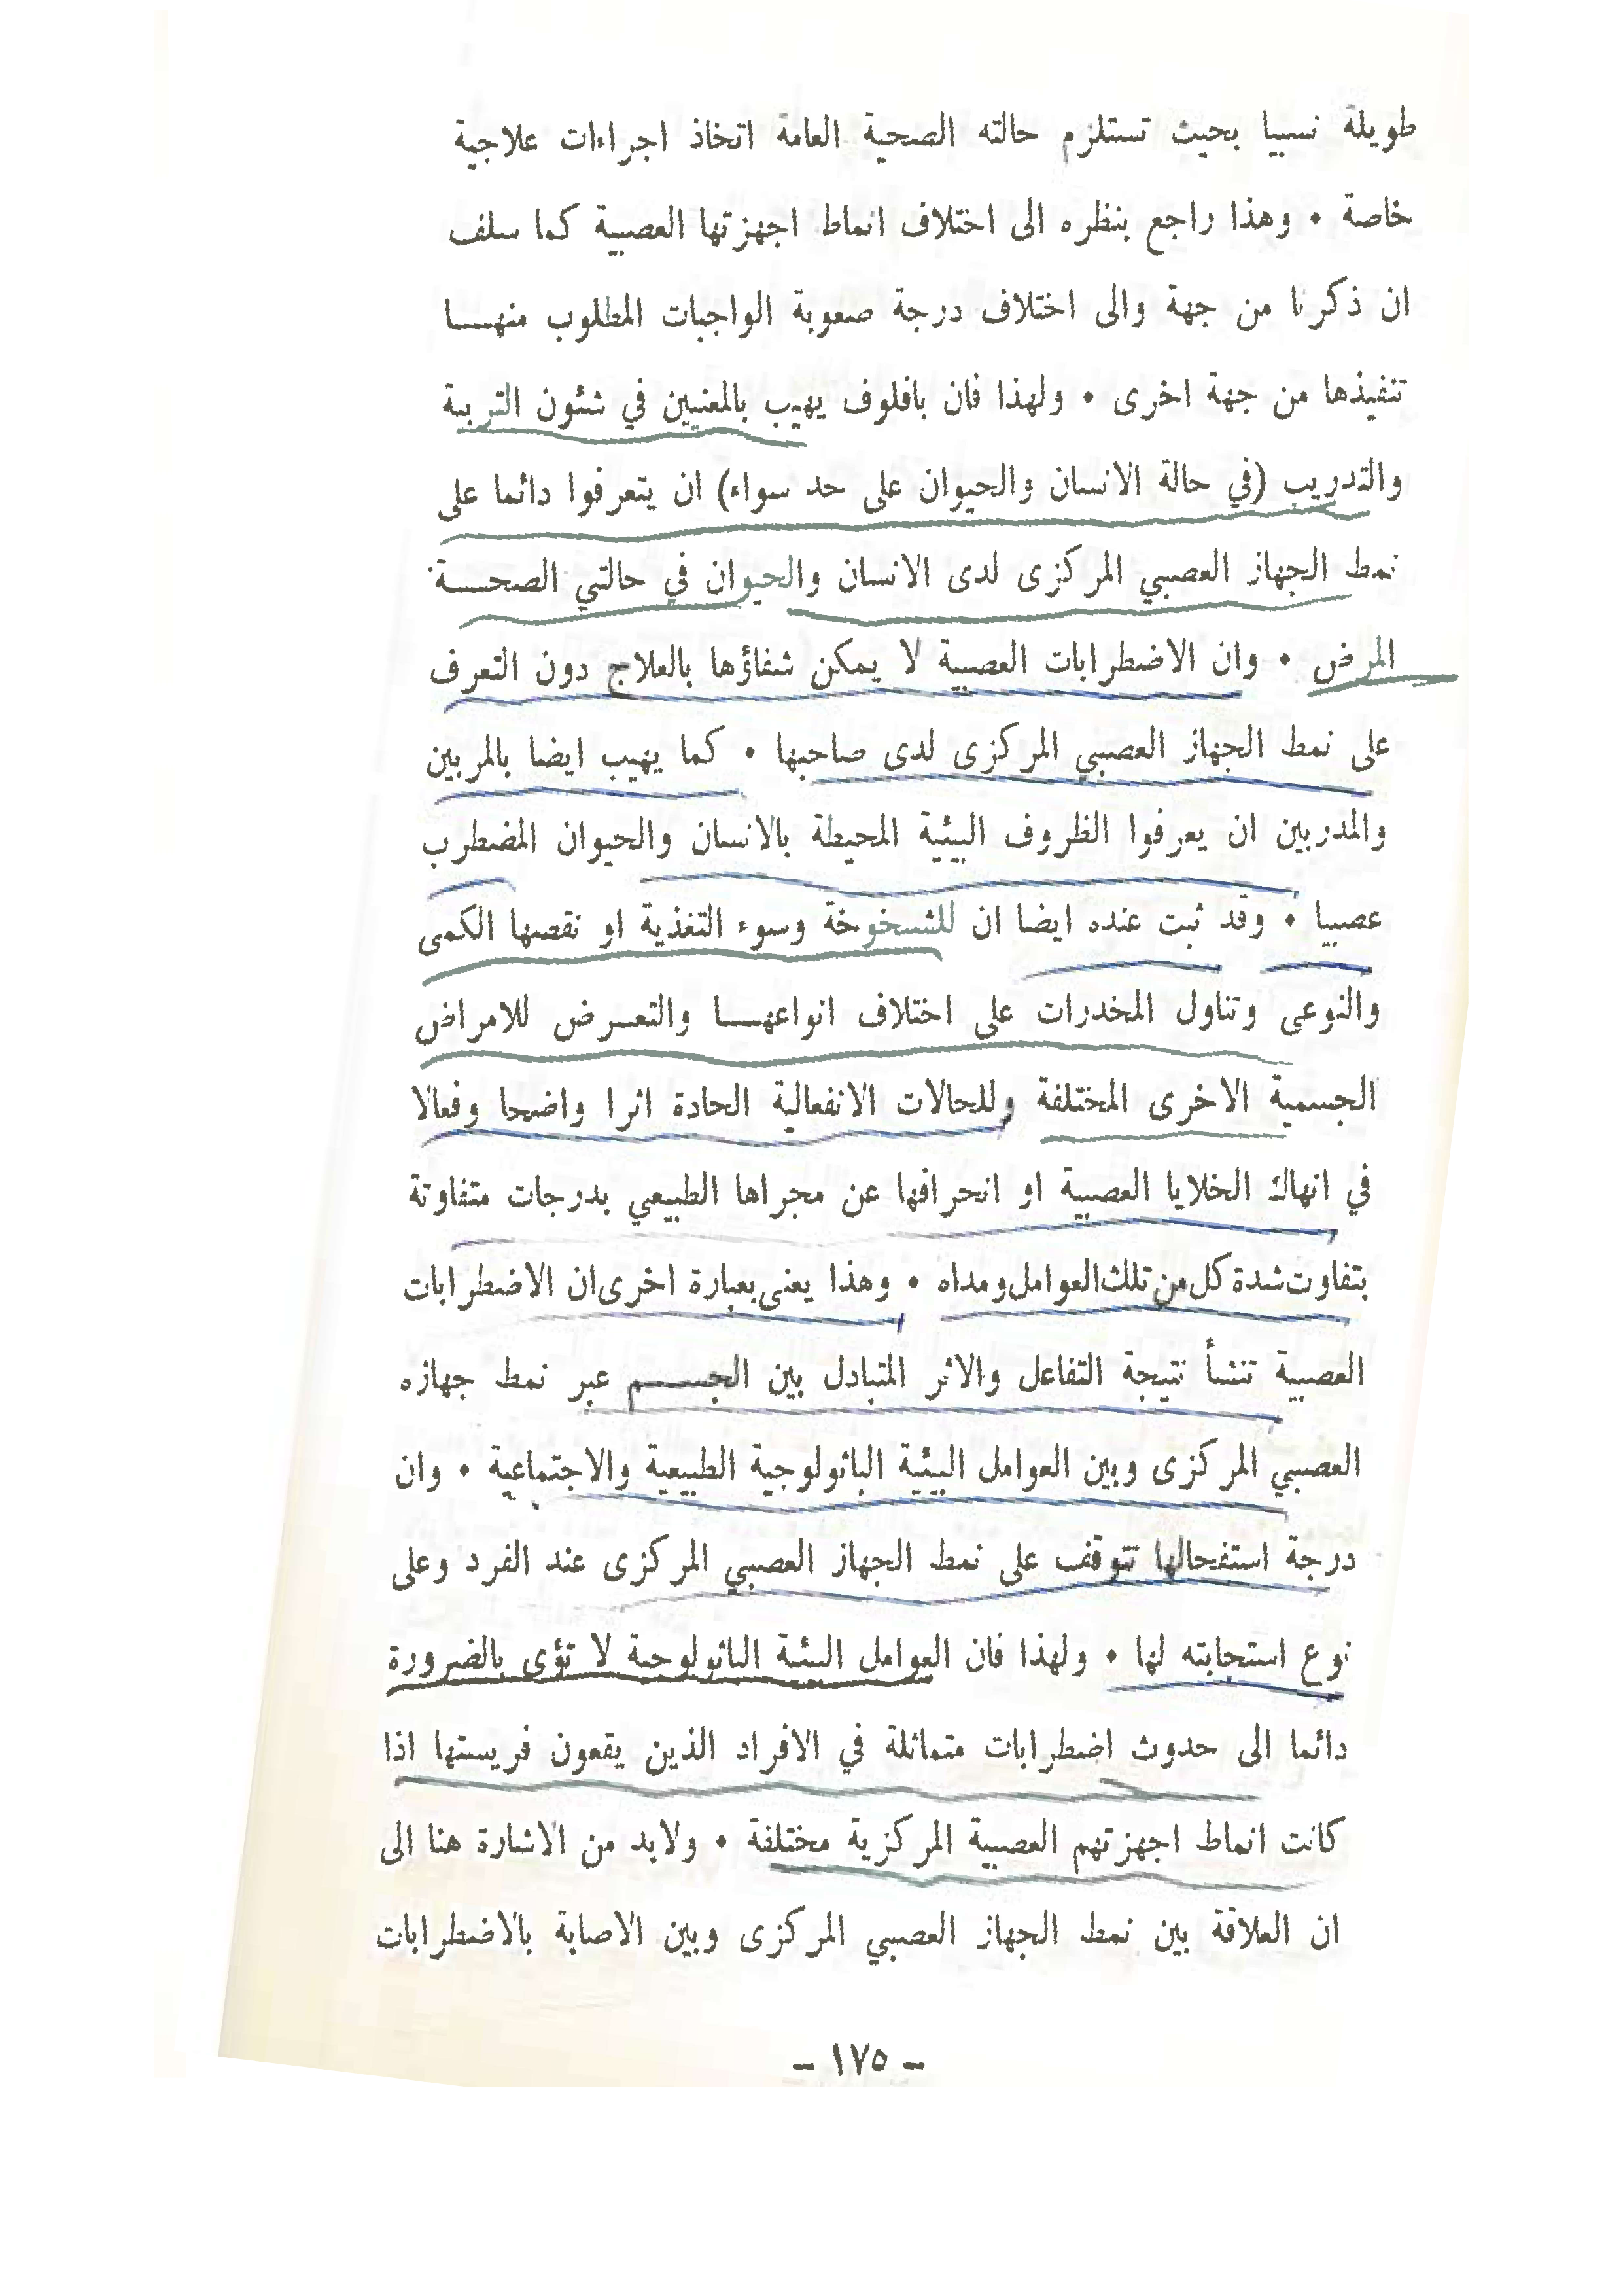 طويلة نسبيا بحيث تستلزم حالته الصحية العامة اتخاذ اجراءات علاجية
خاصة • وهذا راجع بنظره الى اختلاف انماط اجهزتها العصبية كما سلف
ان ذكرنا من جهة والى اختلاف درجة صعوبة الواجبات المطلوب منهــا
تنفيذها من جهة اخرى • ولهذا فان بافلوف يهيب بالمعنيين في شئون التربية
والتدريب (في حالة الانسان والحيوان على حد سواء) ان يتعرفوا دائما على
نمط الجهاز العصبي المركزى لدى الانسان والحيوان في حالتي الصحــة
المرض • وان الاضطرابات العصبية لا يمكن شفاؤها بالعلاج دون التعرف
على نمط الجهاز العصبي المركزى لدى صاحبها • كما يهيب ايضا بالمربين
والمدربين ان يعرفوا الظروف البيئية المحيطة بالانسان والحيوان المضطرب
عصبيا • وقد ثبت عنده ايضا ان للشيخوخة وسوء التغذية او نقصها الكمى
والنوعى وتناول المخدرات على اختلاف انواعهــا والتعــرض للامراض
الجسمية الاخرى المختلفة وللحالات الانفعالية الحادة اثرا واضحا وفعالا
في انهاك الخلايا العصبية او انحرافها عن مجراها الطبيعي بدرجات متفاوتة
بتفاوت شدة كل من تلك العوامل ومداه • وهذا يعنى بعبارة اخرى ان الاضطرابات
العصبية تنشأ نتيجة التفاعل والاثر المتبادل بين الجســم عبر نمط جهازه
العصبي المركزى وبين العوامل البيئية الباثولوجية الطبيعية والاجتماعية • وان
درجة استفحالها تتوقف على نمط الجهاز العصبي المركزى عند الفرد وعلى
نوع استجابته لها • ولهذا فان العوامل البيئة الباثولوجية لا تؤى بالضرورة
دائما الى حدوث اضطرابات متماثلة في الافراد الذين يقعون فريستها اذا
كانت انماط اجهزتهم العصبية المركزية مختلفة • ولابد من الاشارة هنا الى
ان العلاقة بين نمط الجهاز العصبي المركزى وبين الاصابة بالاضطرابات
- ١٧٥ -